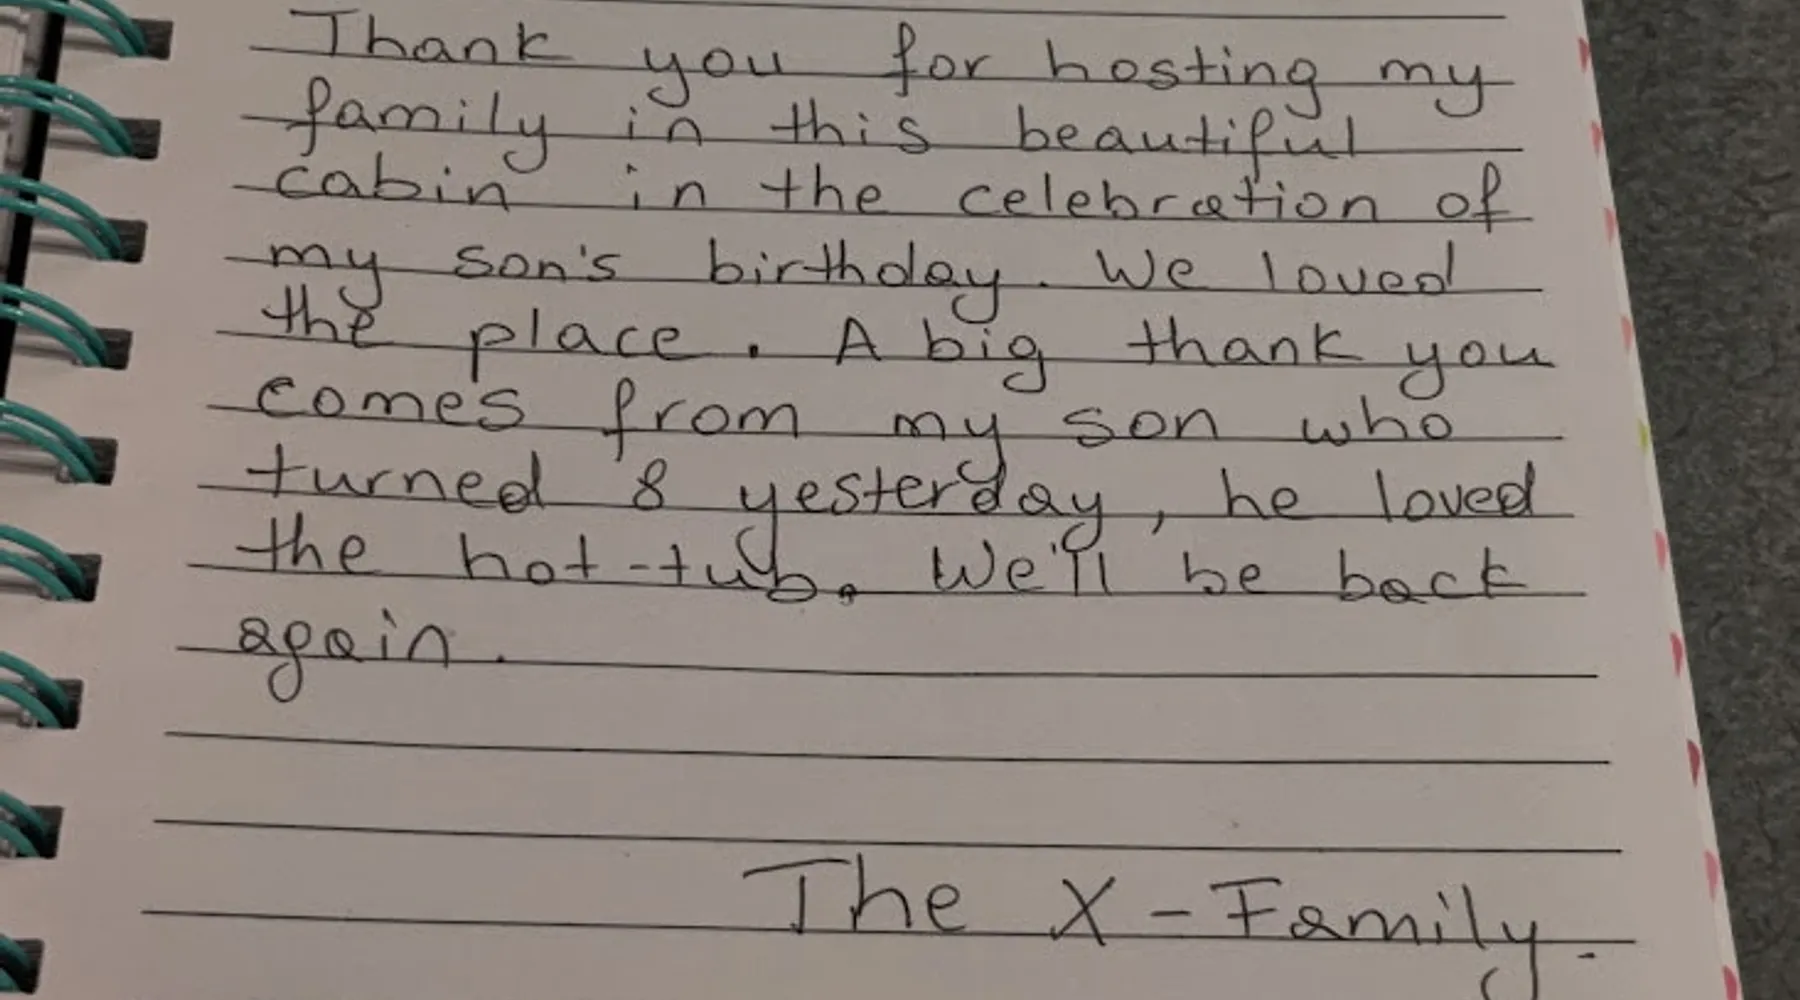 Thank you for hosting my
family in this beautiful
cabin in the celebration of
my son's birthday. We loved
the place. A big thank you
comes from my son who
turned 8 yesterday, he loved
the hot-tub. We'll be back
again.
The X-Family.